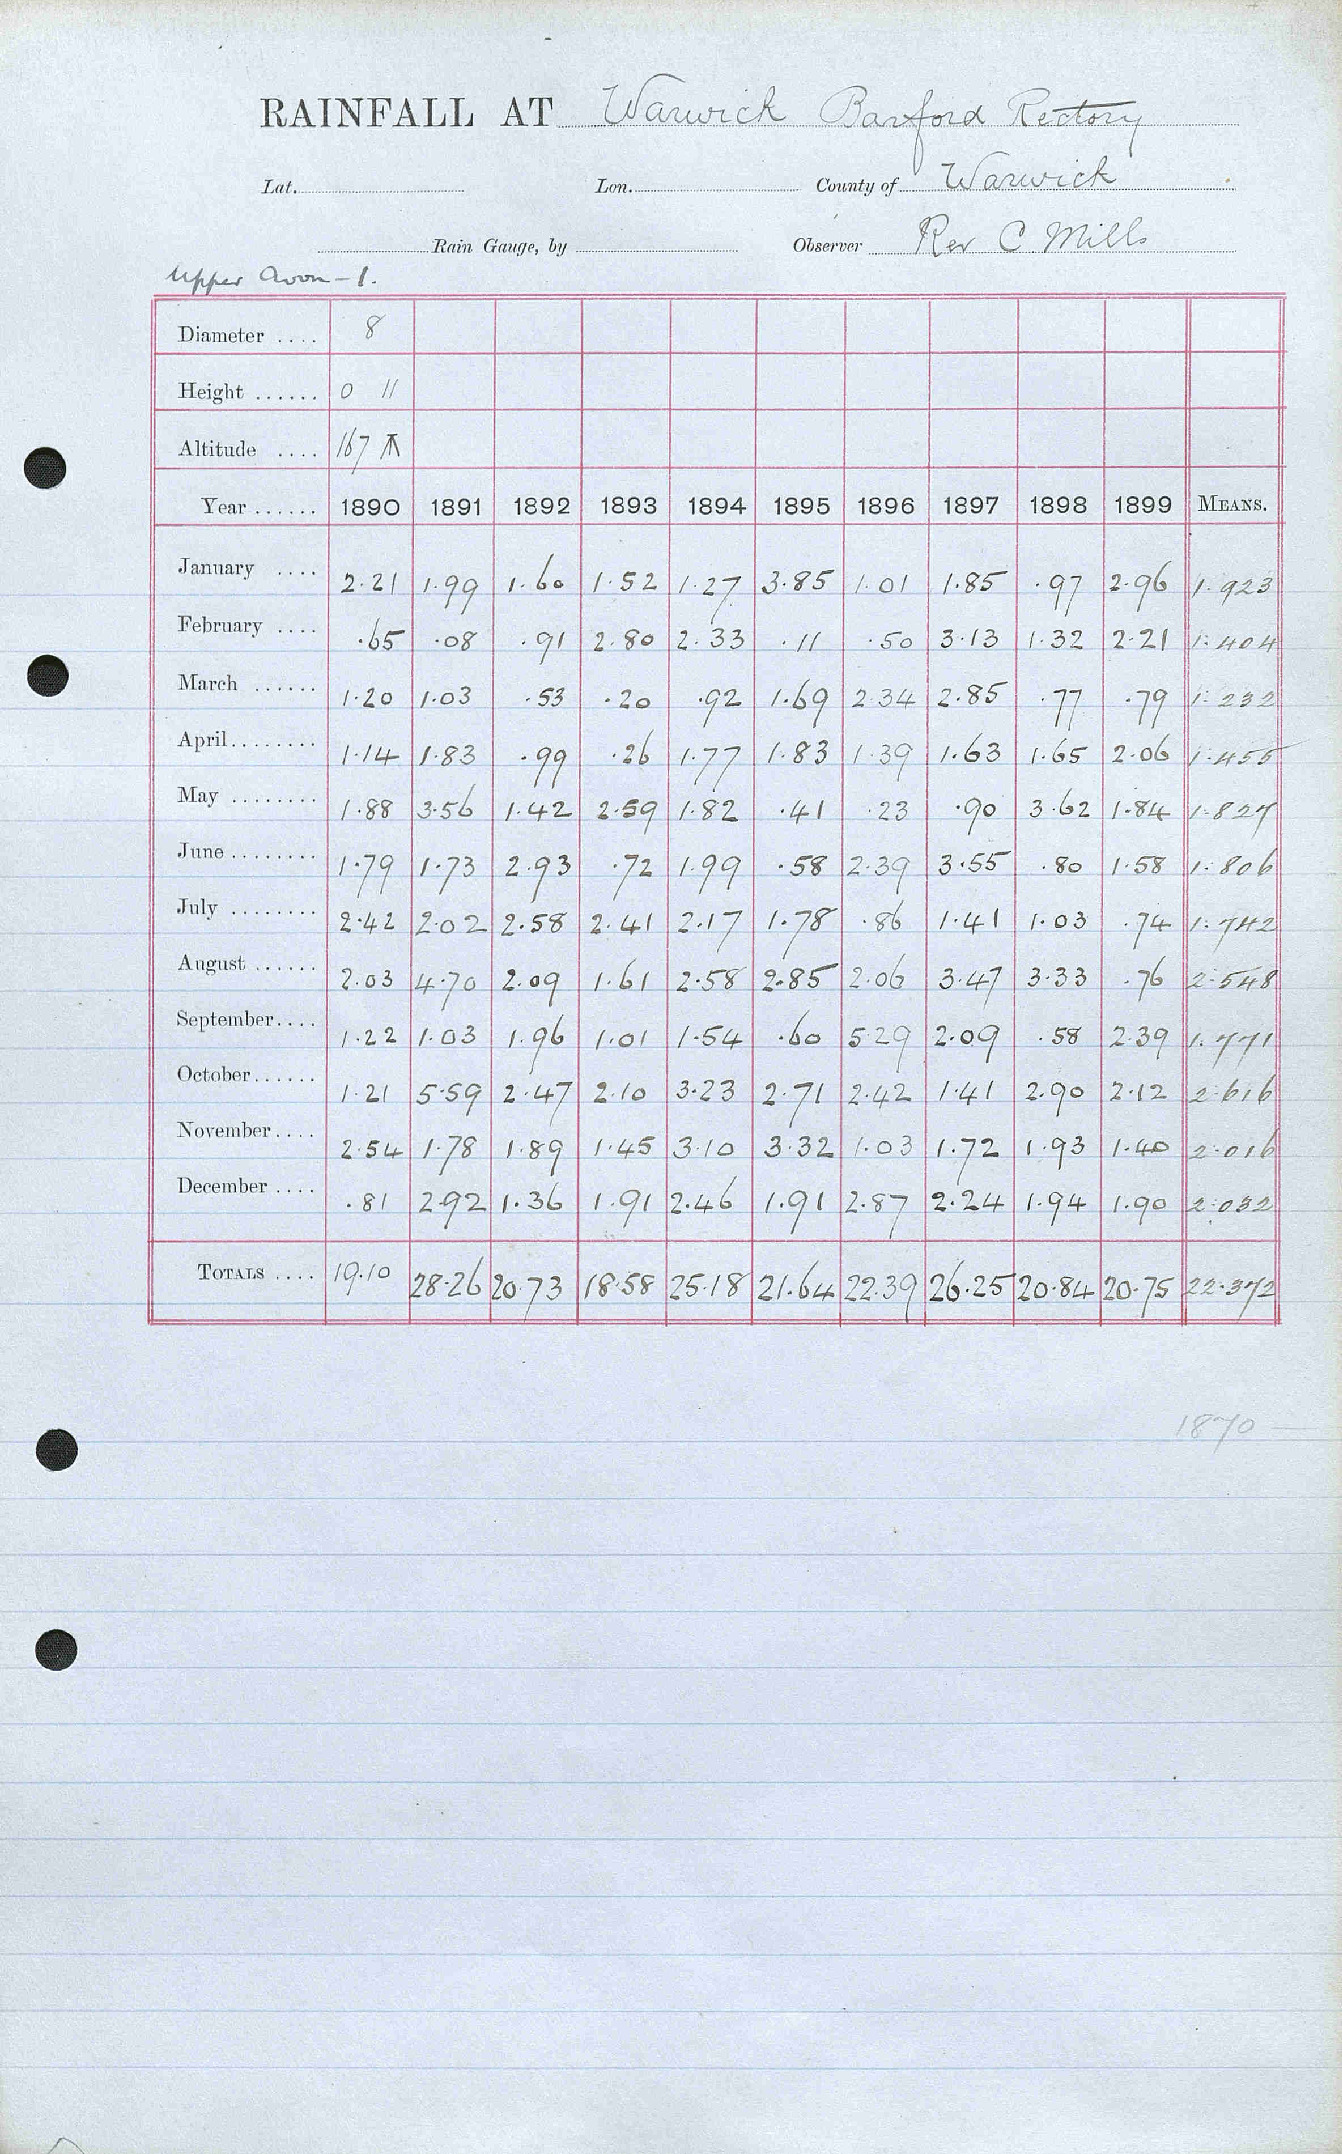 RAINFALL AT Warwick Barford Rectory
Lat. Lon. County of Warwick
Rain Gauge, by Observer Rev C Mills
Upper Avon - 1.
Diameter .... 8
Height ...... 0 11
Altitude .... 167
Year ...... 1890 1891 1892 1893 1894 1895 1896 1897 1898 1899 MEANS.
January .... 2.21 1.99 1.60 1.52 1.27 3.85 1.01 1.85 .97 2.96 1.923
February .... .65 .08 .91 2.80 2.33 .11 .50 3.13 1.32 2.21 1.404
March ...... 1.20 1.03 .53 .20 .92 1.69 2.34 2.85 .77 .79 1.232
April........ 1.14 1.83 .99 .26 1.77 1.83 1.39 1.63 1.65 2.06 1.455
May ........ 1.88 3.56 1.42 2.59 1.82 .41 .23 .90 3.62 1.84 1.827
June ........ 1.79 1.73 2.93 .72 1.99 .58 2.39 3.55 .80 1.58 1.806
July ........ 2.42 2.02 2.58 2.41 2.17 1.78 .86 1.41 1.03 .74 1.742
August ...... 2.03 4.70 2.09 1.61 2.58 2.85 2.06 3.47 3.33 .76 2.548
September.... 1.22 1.03 1.96 1.01 1.54 .60 5.29 2.09 .58 2.39 1.771
October...... 1.21 5.59 2.47 2.10 3.23 2.71 2.42 1.41 2.90 2.12 2.616
November.... 2.54 1.78 1.89 1.45 3.10 3.32 1.03 1.72 1.93 1.40 2.016
December .... .81 2.92 1.36 1.91 2.46 1.91 2.87 2.24 1.94 1.90 2.032
TOTALS .... 19.10 28.26 20.73 18.58 25.18 21.64 22.39 26.25 20.84 20.75 22.372
1870 —